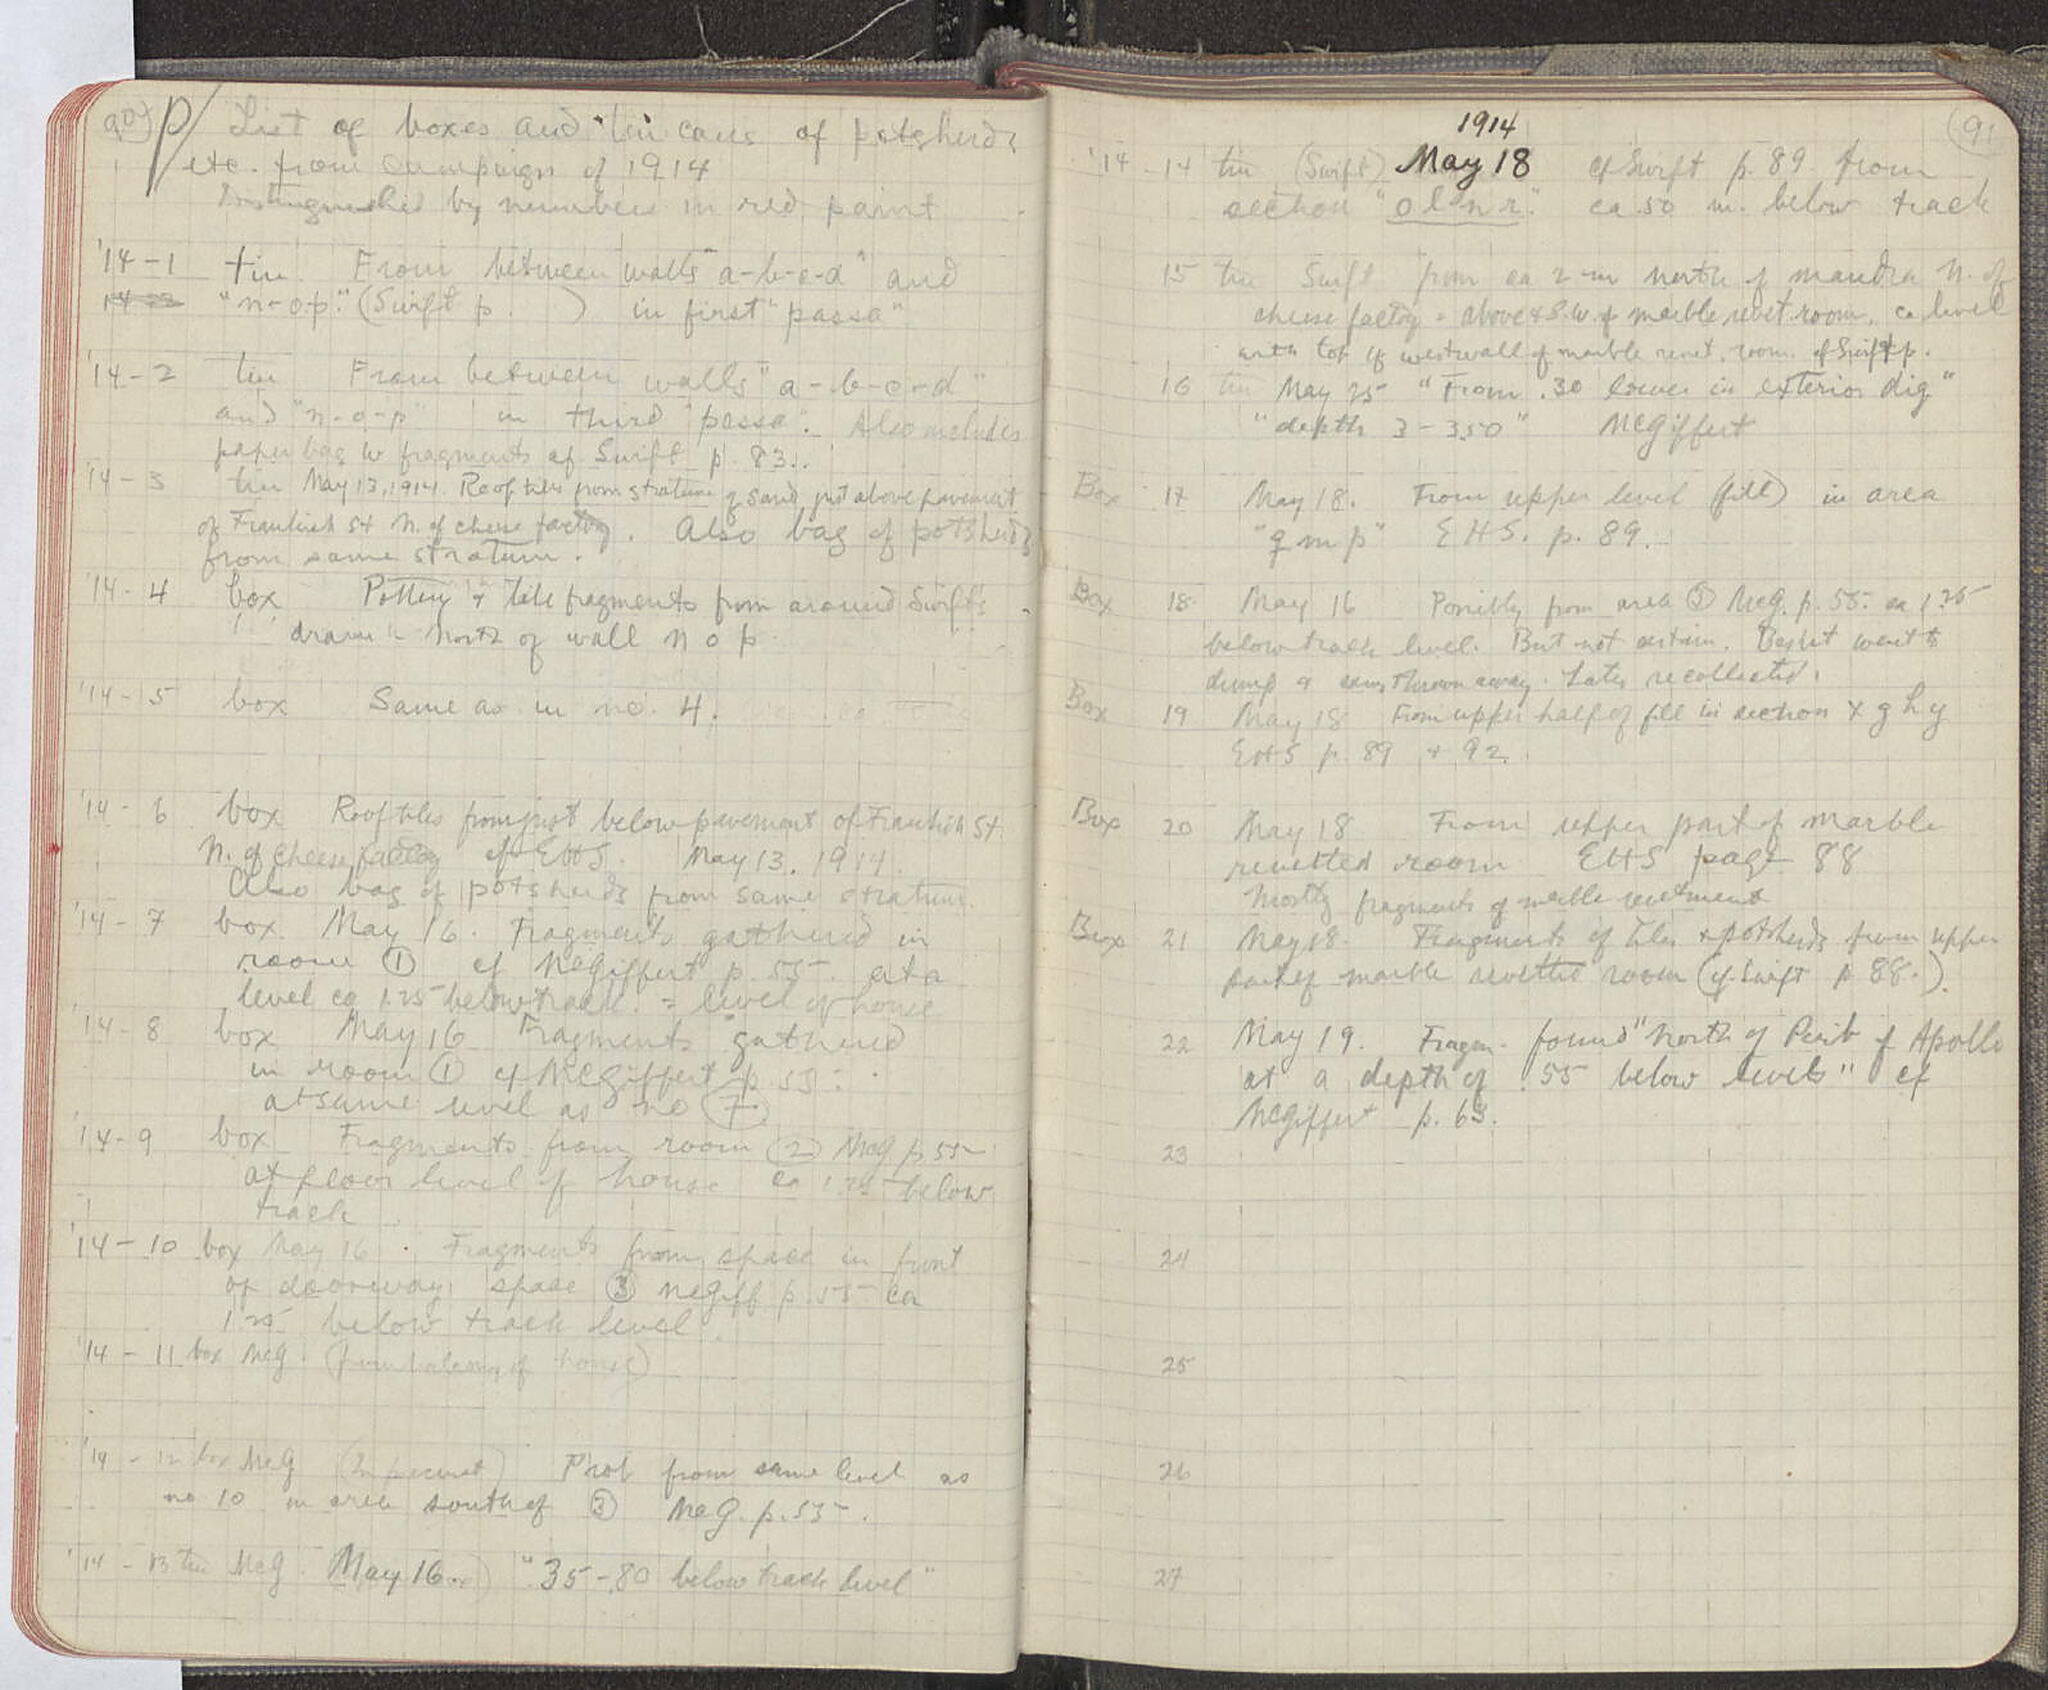 90
P/ List of boxes and tin cans of potsherds
etc. from campaign of 1914
Distinguished by numbers in red paint
'14-1 tin From between walls "a-b-c-d" and
"n-o-p" (Swift p. ) in first "passa"
'14-2 tin From between walls "a-b-c-d"
and "n-o-p" in third "passa". Also includes
paper bag w fragments cf Swift p. 83.
'14-3 tin May 13, 1914. Roof tiles from stratum of sand just above pavement
of Frankish St N. of cheese factory. Also bag of potsherds
from same stratum.
'14-4 box Pottery + tile fragments from around Swift's
drain north of wall n o p
'14-5 box Same as in no. 4.
'14-6 box Roof tiles from just below pavement of Frankish St
N. of cheese factory cf EHS. May 13, 1914.
Also bag of potsherds from same stratum.
'14-7 box May 16. Fragments gathered in
room ① cf McGiffert p. 55 at a
level ca 1.25 below track = level of house
'14-8 box May 16 Fragments gathered
in room ① cf McGiffert p. 55
at same level as no ⑦
'14-9 box Fragments from room ② McG p. 55
at floor level of house ca 1.25 below
track
'14-10 box May 16. Fragments from space in front
of doorway space ③ McGiff p. 55 ca
1.25 below track level.
'14-11 box McG. (from of house)
'14-12 box McG Prob from same level as
no 10 in area south of ③ McG. p. 55.
'14-13 tin McG. May 16. ".35-.80 below track level"
91
1914
'14-14 tin (Swift) May 18 cf Swift p. 89 from
section "o l n r." ca .50 m. below track
15 tin Swift from ca 2 m north of mandra N. of
cheese factory = above + S.W. of marble revet. room, ca level
with top of west wall of marble revet. room. cf Swift p.
16 tin May 25 "From .30 lower in exterior dig"
"depth 3-3.50" McGiffert
Box 17 May 18. From upper level (fill) in area
"q m p" EHS. p. 89.
Box 18 May 16 Possibly from area ③ McG. p. 55. ca 1.25
below track level. But not certain. Basket went to
dump & was thrown away. Later recollected.
Box 19 May 18 From upper half of fill in section x g h y
EHS p. 89 + 92.
Box 20 May 18 From upper part of marble
revetted room EHS page 88
Mostly fragments of marble revetment
Box 21 May 18. Fragments of tiles + potsherds from upper
part of marble revetted room (cf. Swift p 88.).
22 May 19. Fragm. found "North of Perib of Apollo
at a depth of .55 below level" cf
McGiffert p. 63.
23
24
25
26
27